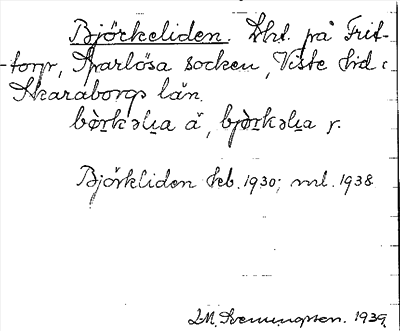 Björkeliden. Lht. på Frit-
torp, Sparlösa socken, Viste hd i
Skaraborgs län.
bö̀rkəlia å, bjö̀rkəlia y.
Björkliden kb. 1930; ml. 1938
1939.